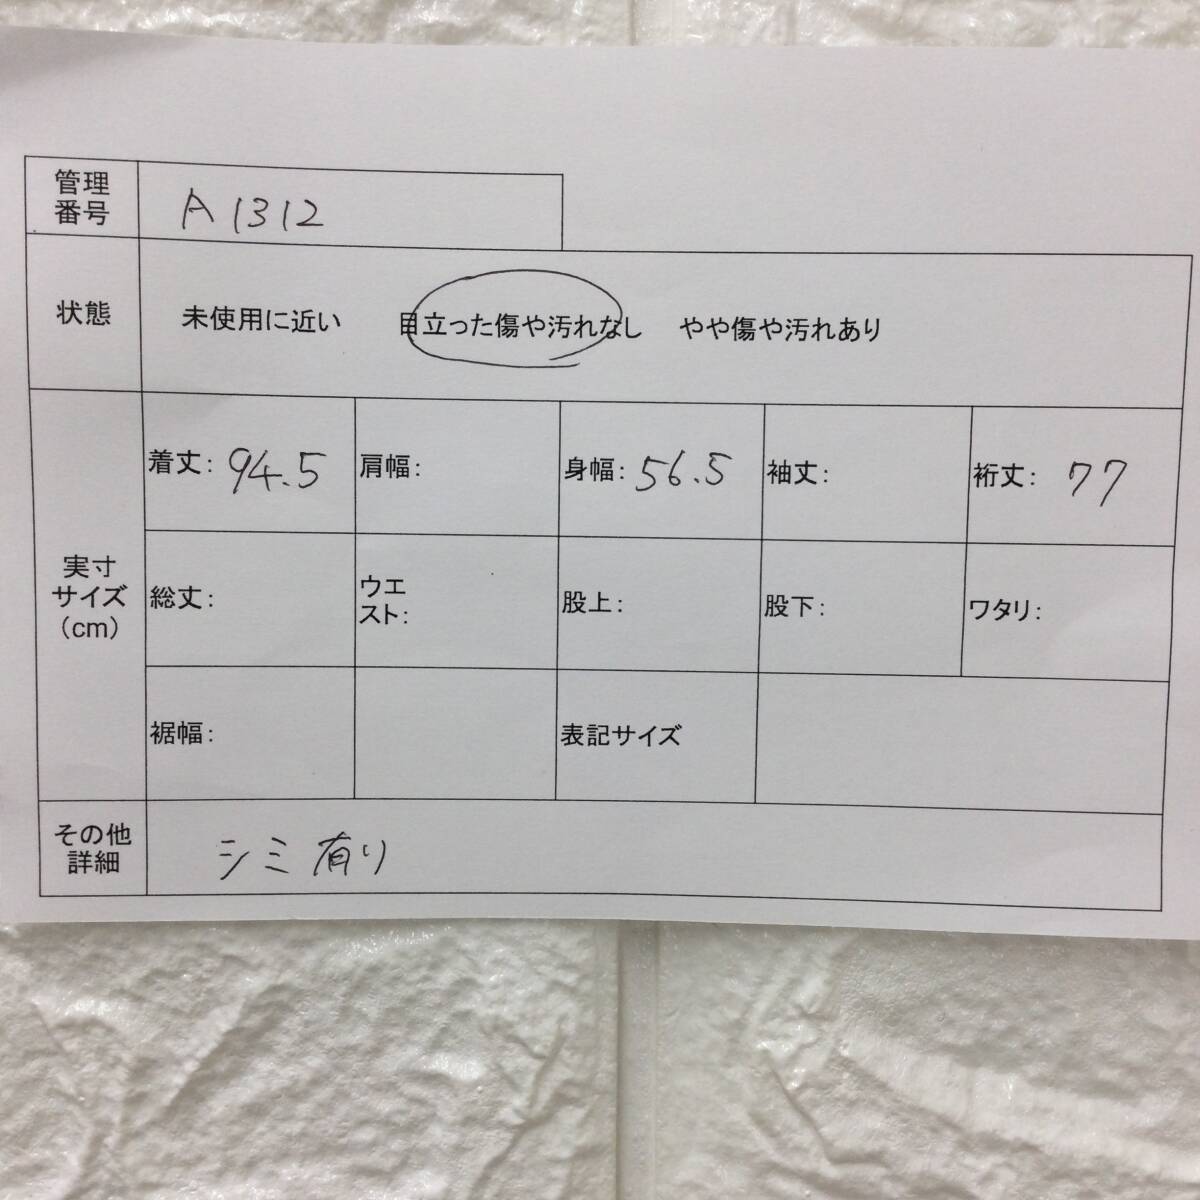 管理
番号
A1312
状態
未使用に近い 目立った傷や汚れなし やや傷や汚れあり
実寸
サイズ
(cm)
着丈: 94.5 肩幅: 身幅: 56.5 袖丈: 裄丈: 77
総丈: ウエ
スト: 股上: 股下: ワタリ:
裾幅: 表記サイズ
その他
詳細
シミ有り